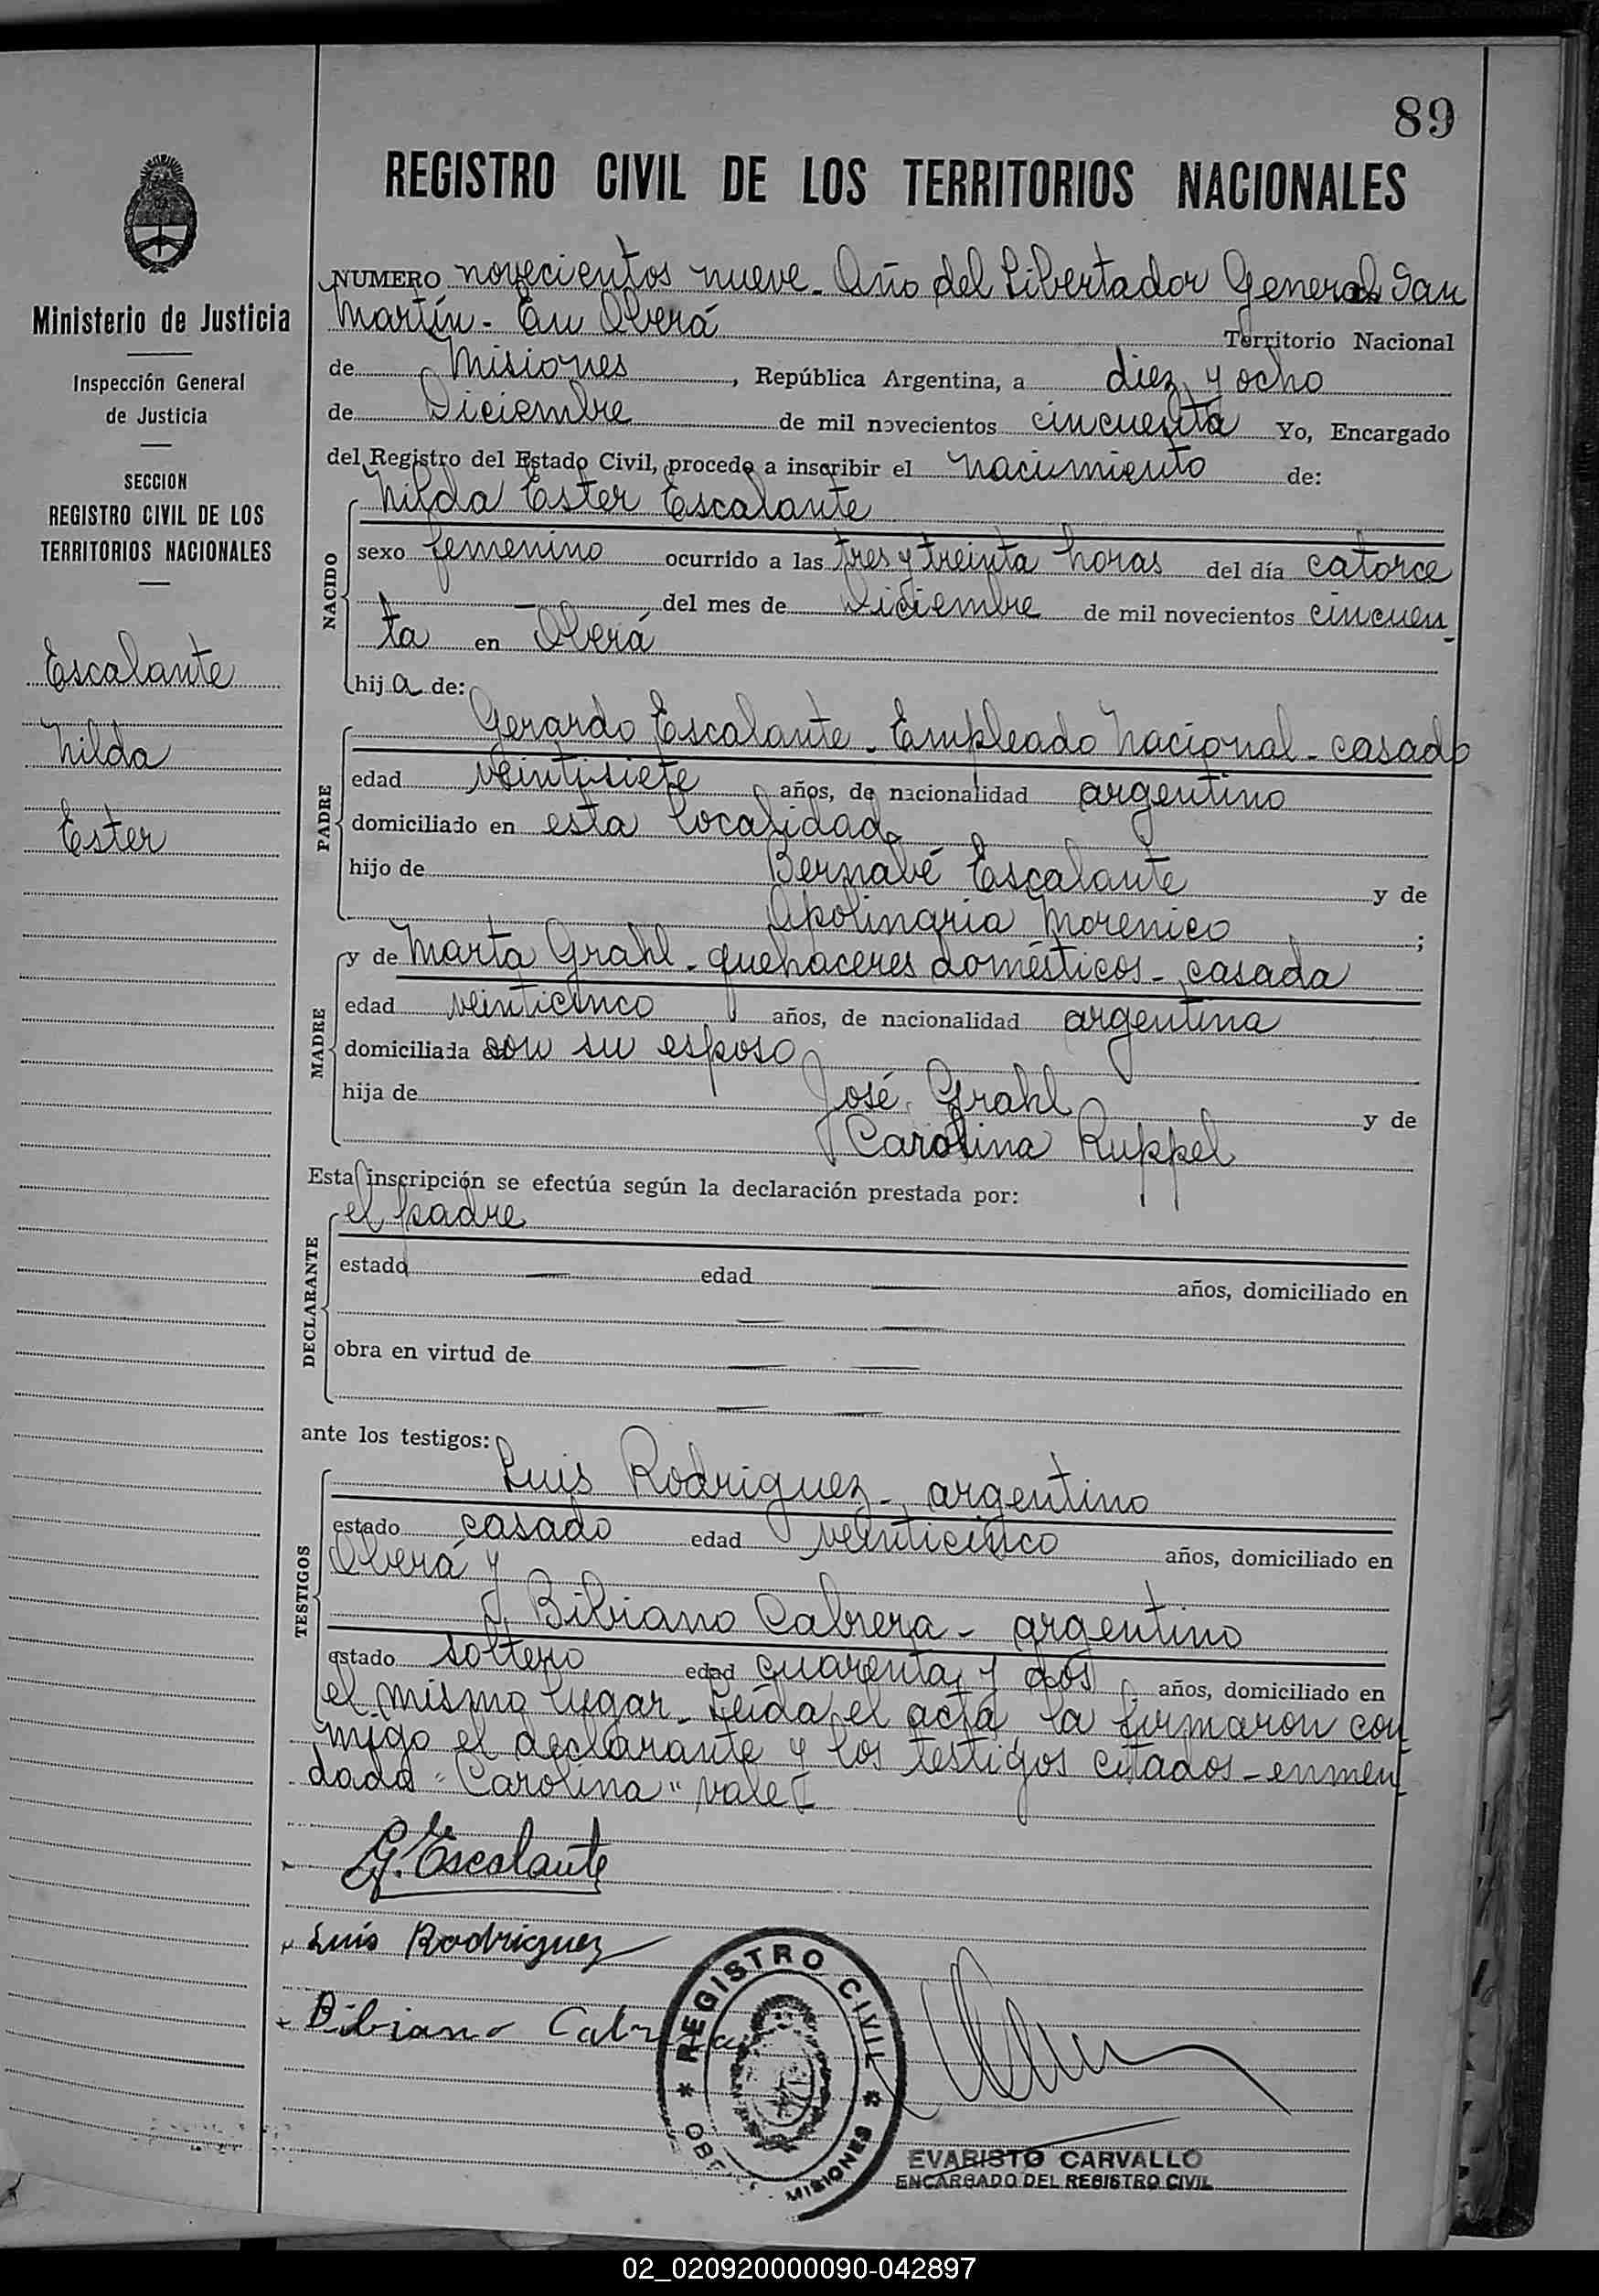 89
REGISTRO CIVIL DE LOS TERRITORIOS NACIONALES
Ministerio de Justicia
Inspección General
de Justicia
SECCION
REGISTRO CIVIL DE LOS
TERRITORIOS NACIONALES
Escalante
Nilda
Ester
NUMERO novecientos nueve - Año del Libertador General San
Martín - En Oberá Territorio Nacional
de Misiones, República Argentina, a diez y ocho
de Diciembre de mil novecientos cincuenta Yo, Encargado
del Registro del Estado Civil, procedo a inscribir el nacimiento de:
Nilda Ester Escalante
NACIDO
sexo femenino ocurrido a las tres y treinta horas del día catorce
— del mes de Diciembre de mil novecientos cincuen
ta en Oberá
hija de:
Gerardo Escalante - Empleado Nacional - casado
PADRE
edad veintisiete años, de nacionalidad argentino
domiciliado en esta localidad
hijo de Bernabé Escalante y de
Apolinaria Morenico ;
y de Marta Grahl - quehaceres domésticos - casada
MADRE
edad veinticinco años, de nacionalidad argentina
domiciliada con su esposo
hija de José Grahl y de
Carolina Ruppel
Esta inscripción se efectúa según la declaración prestada por:
el padre
DECLARANTE
estado — edad — años, domiciliado en
— —
obra en virtud de — —
— —
ante los testigos:
Luis Rodriguez - argentino
TESTIGOS
estado casado edad veinticinco años, domiciliado en
Oberá y
Bibiano Cabrera - argentino
estado soltero edad cuarenta y dos años, domiciliado en
el mismo lugar - Leída el acta la firmaron con
migo el declarante y los testigos citados - enmen
dado "Carolina" vale
G. Escalante
Luis Rodriguez
Bibiano Cabrera
REGISTRO CIVIL
MISIONES
EVARISTO CARVALLO
ENCARGADO DEL REGISTRO CIVIL
02_020920000090-042897